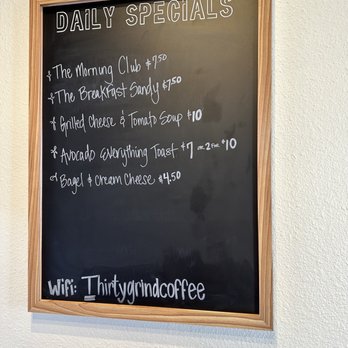 DAILY SPECIALS
The Morning Club $7.50
The Breakfast Sandy $7.50
Grilled Cheese & Tomato Soup $10
Avocado Everything Toast $7 or 2 for $10
Bagel & Cream Cheese $4.50
Wifi: Thirtygrindcoffee